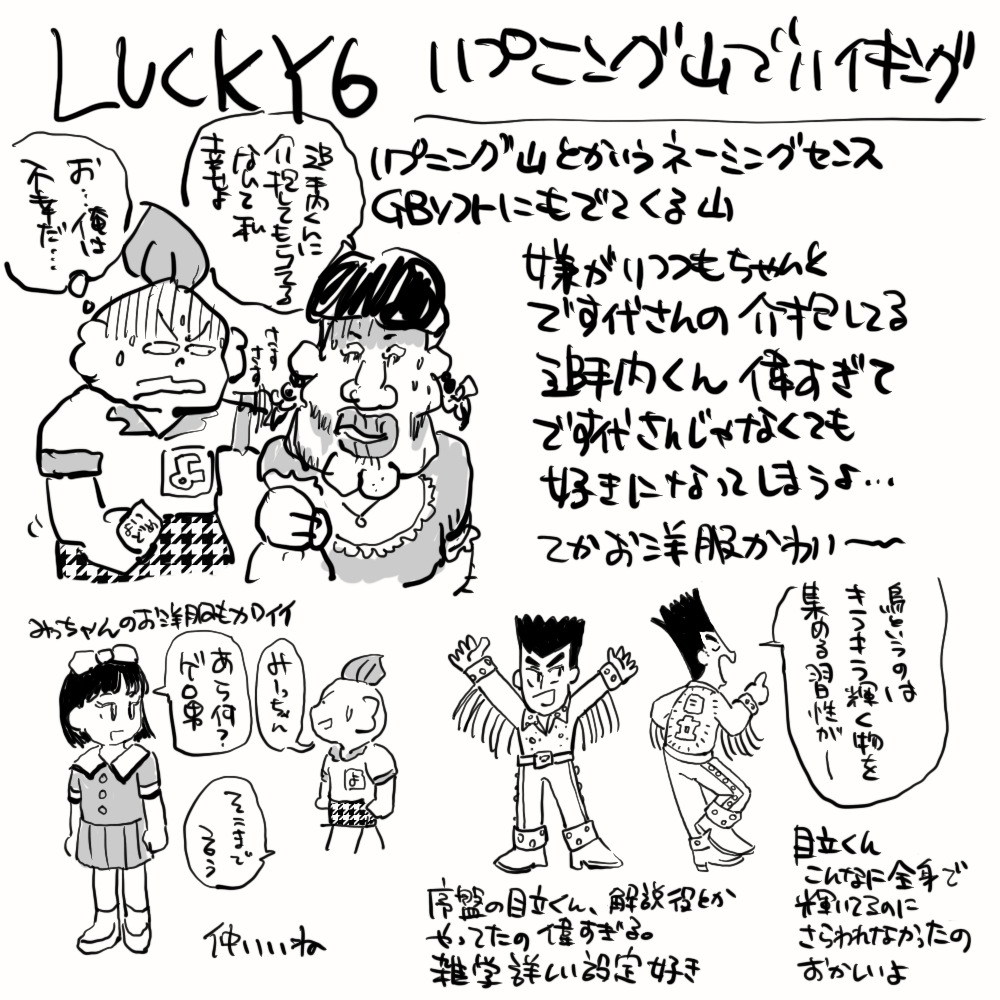 LUCKY6
ハプニング山でハイキング
ハプニング山とかいうネーミングセンス
GBソフトにもでてくる山
お…俺は
不幸だ…
追手内くんに
介抱してもらえる
なんて私
幸せよ
さす
さす
嫌がりつつもちゃんと
ですよさんの介抱してる
追手内くん偉すぎて
ですよさんじゃなくても
好きになってしまうよ…
てかお洋服かわいー
よ
みっちゃんのお洋服もカワイイ
みーっちゃん
あら何?
ゲロ男
そこまで
よ
仲いいね
鳥というのは
きらきら輝く物を
集める習性がー
目立
序盤の目立くん、解説役とか
やってたの偉すぎる。
雑学詳しい設定好き
目立くん
こんなに全身で
輝いてるのに
さらわれなかったの
おかしいよ